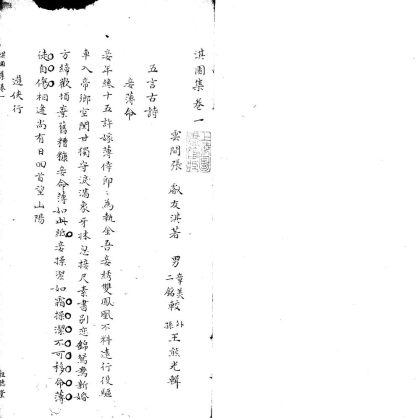 淇園集卷一
雲間張 友淇著 男
章美
二銘
較
外
孫
王 光輯
五言古詩
妾薄命
妾年纔十五許嫁薄倖郎郎為執金吾妾繡雙鳳凰不料遠行役驅
車入帝鄉空閨甘獨守淚滿象牙床忽接尺素書別戀錦鴛鴦新婚
方締歡頓棄舊糟糠妾命薄如此紙妾操潔如霜操潔不可移命薄
徒自傷相逢尚有日回首望山陽
遊俠行
淇園集卷一